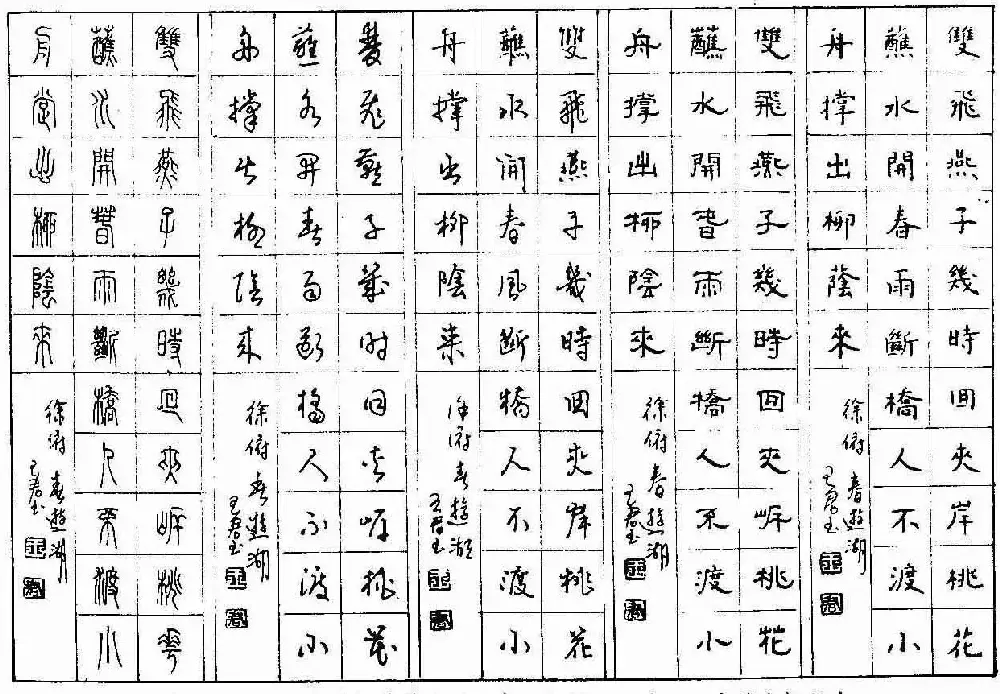 雙飛燕子幾時回夾岸桃花
蘸水開春雨斷橋人不渡小
舟撐出柳蔭來
徐俯春遊湖
雙飛燕子幾時回夾岸桃花
蘸水開春雨斷橋人不渡小
舟撐出柳陰來
徐俯春遊湖
雙飛燕子幾時回夾岸桃花
蘸水開春風斷橋人不渡小
舟撐出柳陰来
徐俯春遊湖
雙飛燕子幾时回夾岸桃花
蘸水開春雨斷橋人不渡小
舟撐出柳陰来
徐俯春遊湖
雙飛燕子幾時回夾岸桃花
蘸水開春雨斷橋人不渡小
舟撐出柳陰來
徐俯春遊湖